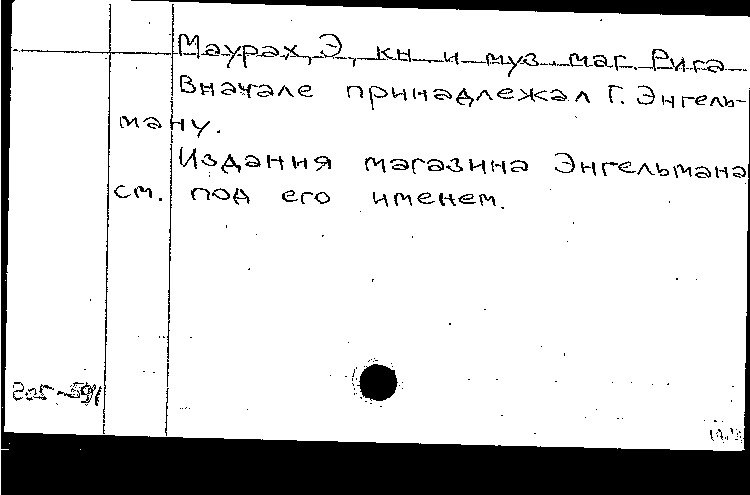 Маурах, Э, кн. и муз. маг. Рига
Вначале принадлежал Г. Энгель-
ману.
Издания магазина Энгельмана
см. под его именем.